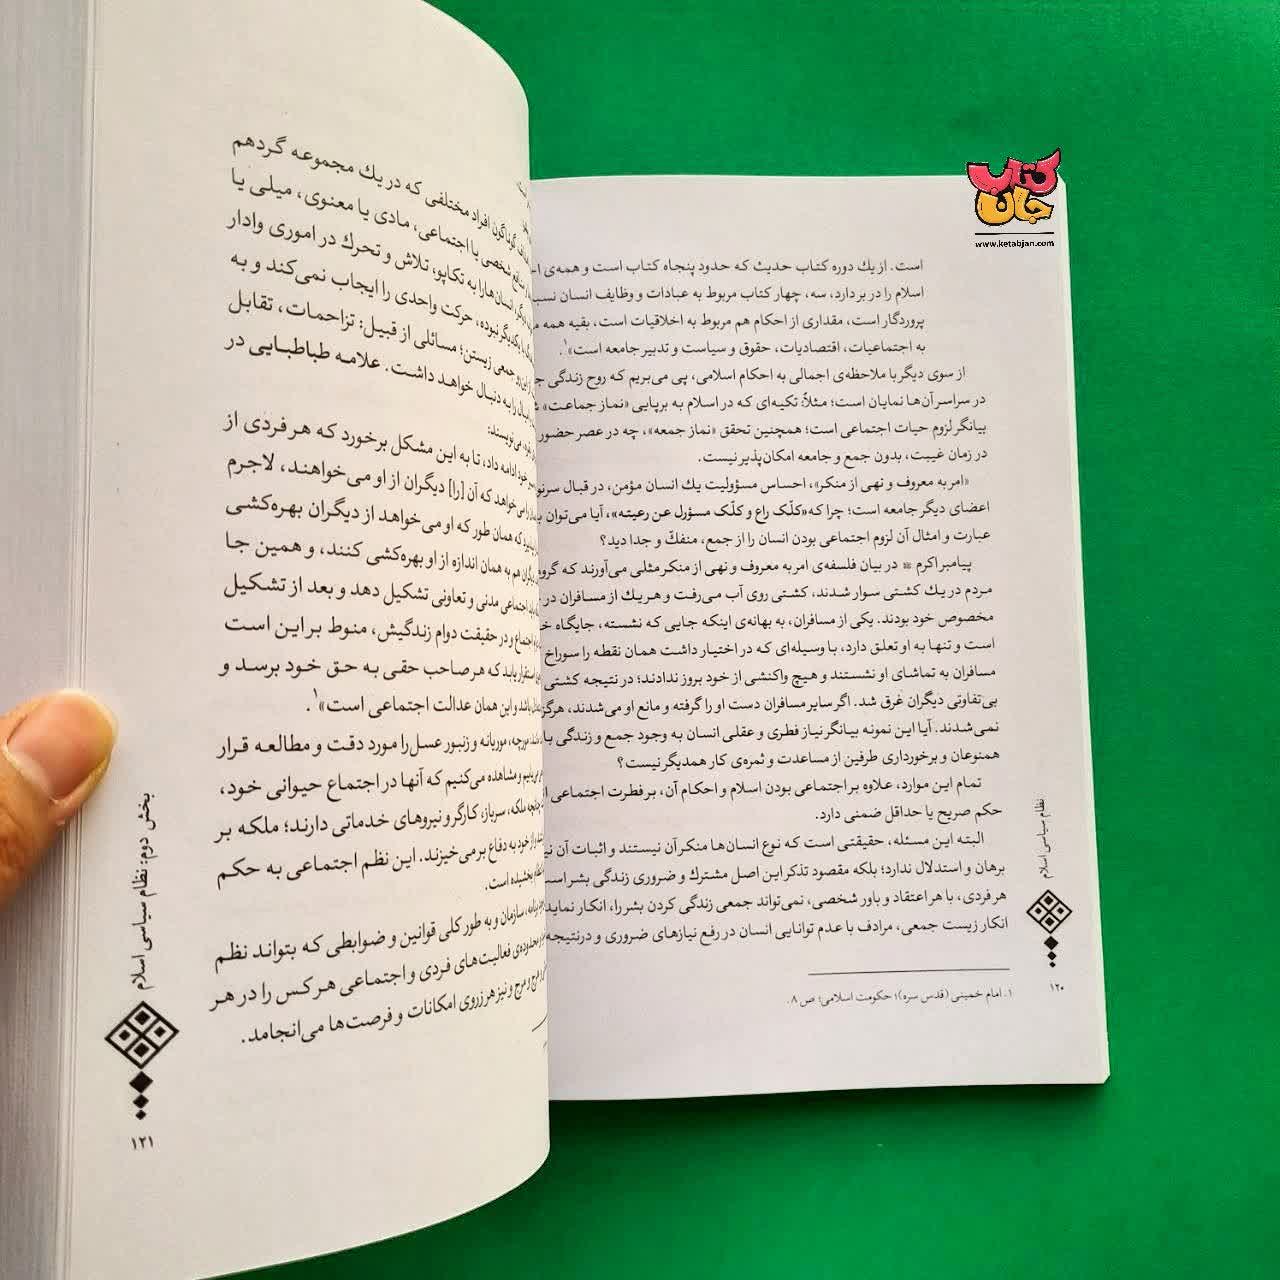 کتاب
جان
www.ketabjan.com
است. از یك دوره کتاب حدیث که حدود پنجاه کتاب است و همه‌ی
اسلام را در بر دارد، سه، چهار کتاب مربوط به عبادات و وظایف انسان
پروردگار است، مقداری از احکام هم مربوط به اخلاقیات است، بقیه همه
به اجتماعیات، اقتصادیات، حقوق و سیاست و تدبیر جامعه است»۱.
از سوی دیگر با ملاحظه‌ی اجمالی به احکام اسلامی، پی می‌بریم که روح زندگی
در سراسر آن‌ها نمایان است؛ مثلاً: تکیه‌ای که در اسلام به برپایی «نماز جماعت»
بیانگر لزوم حیات اجتماعی است؛ همچنین تحقق «نماز جمعه»، چه در عصر حضور
در زمان غیبت، بدون جمع و جامعه امکان‌پذیر نیست.
«امر به معروف و نهی از منکر»، احساس مسؤولیت یك انسان مؤمن، در قبال
اعضای دیگر جامعه است؛ چرا که «کلّک راع و کلّک مسؤرل عن رعیته»، آیا می‌توان
عبارت و امثال آن لزوم اجتماعی بودن انسان را از جمع، منفكّ و جدا دید؟
پیامبر اکرم در بیان فلسفه‌ی امر به معروف و نهی از منکر مثلی می‌آورند که
مردم در یك کشتی سوار شدند، کشتی روی آب می‌رفت و هر یك از مسافران در
مخصوص خود بودند. یکی از مسافران، به بهانه‌ی اینکه جایی که نشسته، جایگاه
است و تنها به او تعلق دارد، با وسیله‌ای که در اختیار داشت همان نقطه را سوراخ
مسافران به تماشای او نشستند و هیچ واکنشی از خود بروز ندادند؛ در نتیجه کشتی
بی‌تفاوتی دیگران غرق شد. اگر سایر مسافران دست او را گرفته و مانع او می‌شدند،
نمی‌شدند. آیا این نمونه بیانگر نیاز فطری و عقلی انسان به وجود جمع و زندگی
همنوعان و برخورداری طرفین از مساعدت و ثمره‌ی کار همدیگر نیست؟
تمام این موارد، علاوه بر اجتماعی بودن اسلام و احکام آن، بر فطرت اجتماعی
حکم صریح یا حداقل ضمنی دارد.
البته این مسئله، حقیقتی است که نوع انسان‌ها منکر آن نیستند و اثبات آن
برهان و استدلال ندارد؛ بلکه مقصود تذکر این اصل مشترك و ضروری زندگی بشر است
هر فردی، با هر اعتقاد و باور شخصی، نمی‌تواند جمعی زندگی کردن بشر را، انکار نماید
انکار زیست جمعی، مرادف با عدم توانایی انسان در رفع نیازهای ضروری و درنتیجه
۱. امام خمینی (قدس سره)؛ حکومت اسلامی؛ ص ۸.
نظام سیاسی اسلام
۱۲۰
گوناگون افراد مختلفی که در یك مجموعه گردهم
منافع شخصی یا اجتماعی، مادی یا معنوی، میلی یا
انسان‌ها را به تکاپو، تلاش و تحرك در اموری وادار
یکدیگر نبوده، حرکت واحدی را ایجاب نمی‌کند و به
جمعی زیستن؛ مسائلی از قبیل: تزاحمات، تقابل
را به دنبال خواهد داشت. علامه طباطبایی در
می‌نویسند:
خود ادامه داد، تا به این مشکل برخورد که هر فردی از
می‌خواهد که آن [را] دیگران از او می‌خواهند، لاجرم
که همان طور که او می‌خواهد از دیگران بهره‌کشی
دیگران هم به همان اندازه از او بهره‌کشی کنند، و همین جا
باید اجتماعی مدنی و تعاونی تشکیل دهد و بعد از تشکیل
اجتماع و در حقیقت دوام زندگیش، منوط بر این است
استقرار یابد که هر صاحب حقی به حق خود برسد و
باشد و این همان عدالت اجتماعی است»۱.
مورچه، موریانه و زنبور عسل را مورد دقت و مطالعه قرار
می‌یابیم و مشاهده می‌کنیم که آنها در اجتماع حیوانی خود،
ملکه، سرباز، کارگر و نیروهای خدماتی دارند؛ ملکه بر
از خود به دفاع برمی‌خیزند. این نظم اجتماعی به حکم
بخشیده است.
برنامه، سازمان و به طور کلی قوانین و ضوابطی که بتواند نظم
محدوده‌ی فعالیت‌های فردی و اجتماعی هر کس را در هر
هرج و مرج و نیز هرزروی امکانات و فرصت‌ها می‌انجامد.
بخش دوم: نظام سیاسی اسلام
۱۲۱